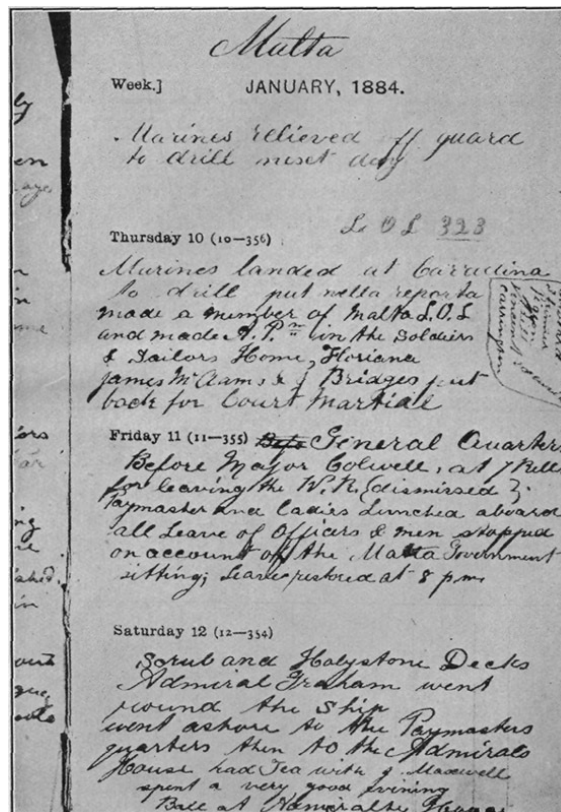 Malta
Week.] JANUARY, 1884.
Marines relieved off guard
to drill next day
L O L 323
Thursday 10 (10—356)
Marines landed at Corradina
to drill put
made a member of Malta L.O.L
and made A. Pm in the Soldiers
& Sailors Home, Floriana
James & J Bridges put
back for Court Martial
Friday 11 (11—355) General Quarters
Before Major Colwell, at 7 Bells
for leaving the W.R. (dismissed);
Paymaster and Ladies Lunched aboard
all Leave of Officers & men stopped
on account of the Malta Government
sitting; Leave restored at 8 pm
Saturday 12 (12—354)
Scrub and Holystone Decks
Admiral Graham went
round the Ship
went ashore to the Paymasters
quarters then to the Admirals
House had Tea with J Maxwell
spent a very good evining
Ball at
Carrington